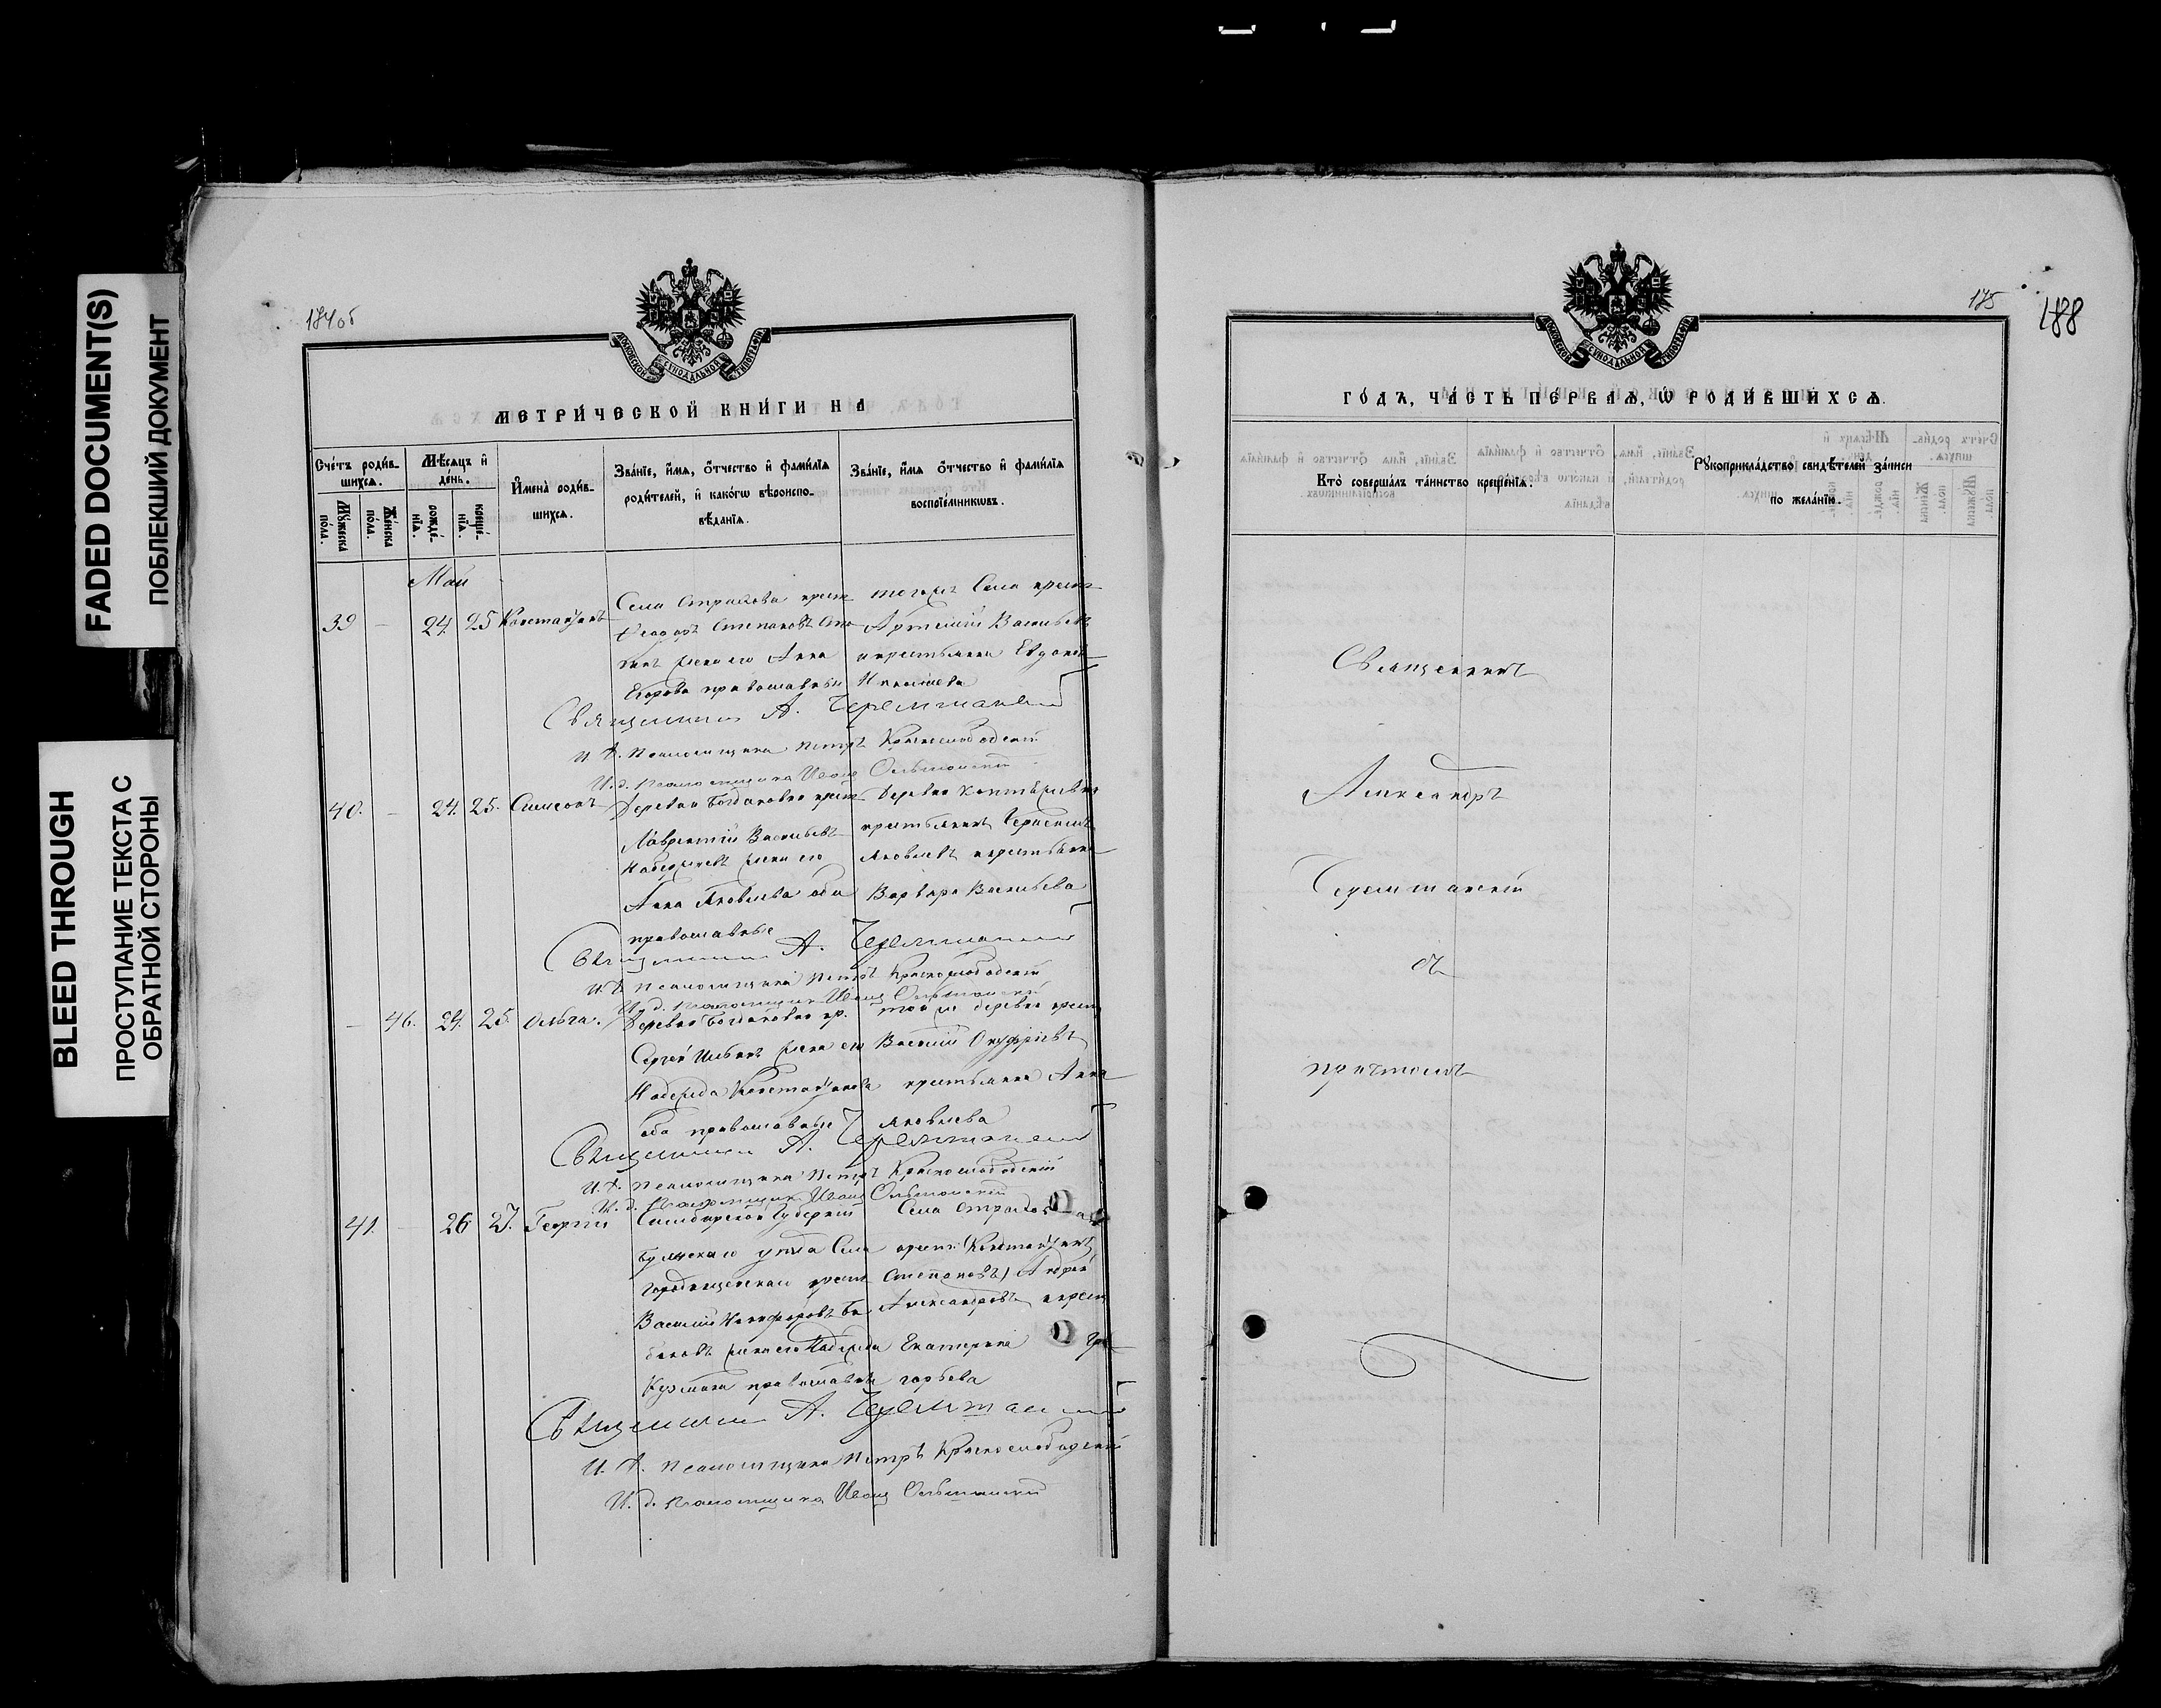 FADED DOCUMENT(S)
ПОБЛЕКШИЙ ДОКУМЕНТ
BLEED THROUGH
ПРОСТУПАНИЕ ТЕКСТА С
ОБРАТНОЙ СТОРОНЫ
174об
МОСКОВСКОЙ СѴНОДАЛЬНОЙ ТИПОГРАФІИ
МЕТРИ́ЧЕСКОЙ КНИ́ГИ НА
Сче́тъ роди́в-
шихсѧ.
Мꙋ́жеска
по́ла.
Же́нска
по́ла.
Мѣ́сѧцъ и҆
де́нь.
рожде́-
нїѧ.
креще́-
нїѧ.
И҆мена̀ роди́в-
шихсѧ.
Зва́нїе, и҆́мѧ, ѻ҆́тчество и҆ фами́лїѧ
роди́телей, и҆ како́гѡ вѣроиспо-
вѣ́данїѧ.
Зва́нїе, и҆́мѧ ѻ҆́тчество и҆ фами́лїѧ
воспрїе́мникѡвъ.
Май
39 – 24. 25 Константинъ
Села Страхова крест
Ѳеодоръ Степановъ
жена его Анна
Егорова православные
тогоже Села крест
Артемій Васильевъ
и крестьянка Евдокія
Священникъ А. Черемшанскій
И. д. Псаломщика Петръ Краснослободскій
И. д. Псаломщика
40. – 24. 25. Симеонъ
Деревни Богдановки крест
Лаврентій Васильевъ
жена его
Анна Яковлева оба
православные
Деревни
крестьянинъ Герасимъ
Яковлевъ и крестьянка
Варвара Васильева
Священникъ А. Черемшанскій
И. д. Псаломщика Петръ Краснослободскій
И. д. Псаломщика
– 46. 24. 25. Ольга.
Деревни Богдановки кр.
Сергей Ильинъ жена его
Надежда Константинова
оба православные
той же деревни крест
Василій Онуфріевъ
крестьянка Анна
Яковлева
Священникъ А. Черемшанскій
И. д. Псаломщика Петръ Краснослободскій
И. д. Псаломщика
41. – 26. 27. Георгій
Симбирской Губерніи
уѣзда Села
Городищенскаго крест
Василій Никифоровъ
жена его Надежда
Кузмина православные
Села Страхова
крест. Константинъ
Степановъ) Андрей
Александровъ и крест
Екатерина Гри-
горьева
Священникъ А. Черемшанскій
И. д. Псаломщика Петръ Краснослободскій
И. д. Псаломщика
175
188
МОСКОВСКОЙ СѴНОДАЛЬНОЙ ТИПОГРАФІИ
ГО́ДЪ, ЧА́СТЬ ПЕ́РВАѦ, Ѡ҆ РОДИ́ВШИХСѦ.
Кто̀ соверша́лъ та́инство креще́нїѧ.
Рꙋкоприкла́дство свидѣ́телей за́писи
по жела́нїю.
Священникъ
Александръ
Черемшанскій
съ
причтомъ